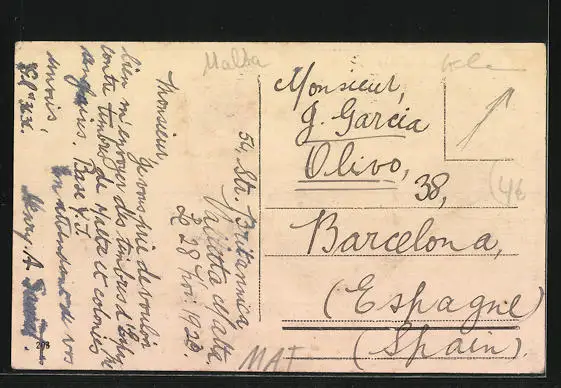 Malta
54, St. Britannica
Valletta Malta
Le 28 1920
Monsieur
Je vous prie de vouloir
bien m'envoyer des timbres d'Espagne
contre timbres de Malte et colonies
anglaises. Base Y. T.
En attendant de vos
envois,
Mary A.
209
MAT
Monsieur,
J. Garcia
Olivo,
38,
Barcelona,
(Espagne)
(Spain).